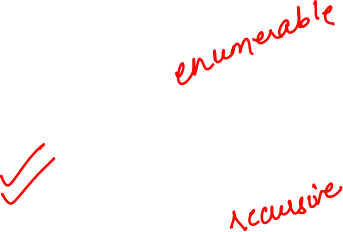 enumerable
recursive